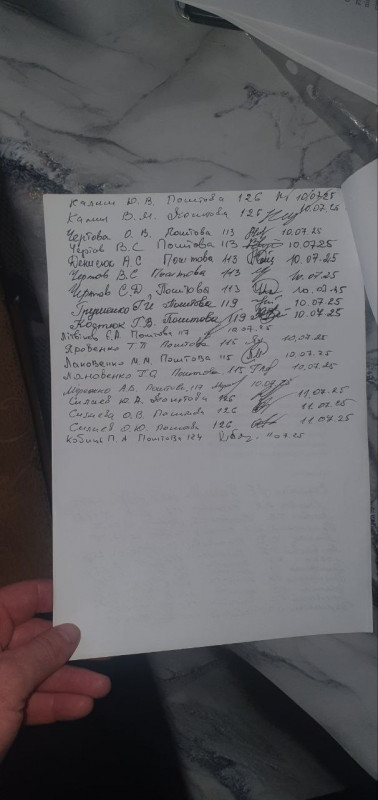 Калин Ю. В. Поштова 126 10.07.25
Калин В.М. Поштова 126 10.07.25
Чертова О. В. Поштова 113 10.07.25
Чертов В.С Поштова 113 10.07.25
А.С Поштова 113 10.07.25
Чертов В.С Поштова 113 10.07.25
Чертов С.Д Поштова 113 10.07.25
Глушенко Г.И Поштова 119 10.07.25
Г.В. Поштова 119 10.07.25
Поштова 117 10.07.25
Яровенко Т.П Поштова 116 10.07.25
Лановенко М.М. Поштова 115 10.07.25
Лановенко Т.С Поштова 115 10.07.25
А.В. Поштова 117 10.07.25
Силаев Ю. А. Поштова 126 11.07.25
Силаева О.В. Поштова 126 11.07.25
Силаев О.Ю. Поштова 126 11.07.25
П. А Поштова 124 11.07.25